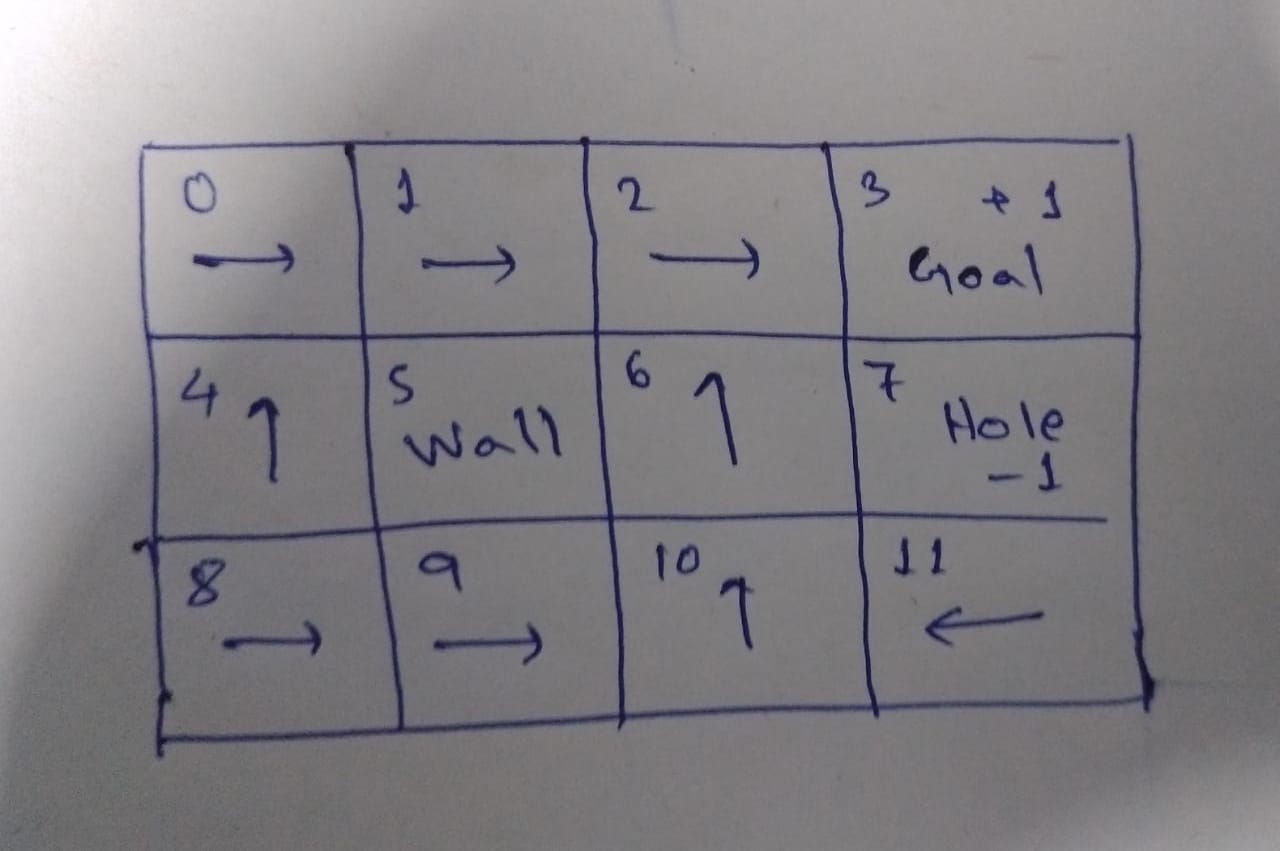 0 → 1 → 2 → 3 + 1
Goal
4 ↑ 5 Wall 6 ↑ 7 Hole
- 1
8 → 9 → 10 ↑ 11 ←